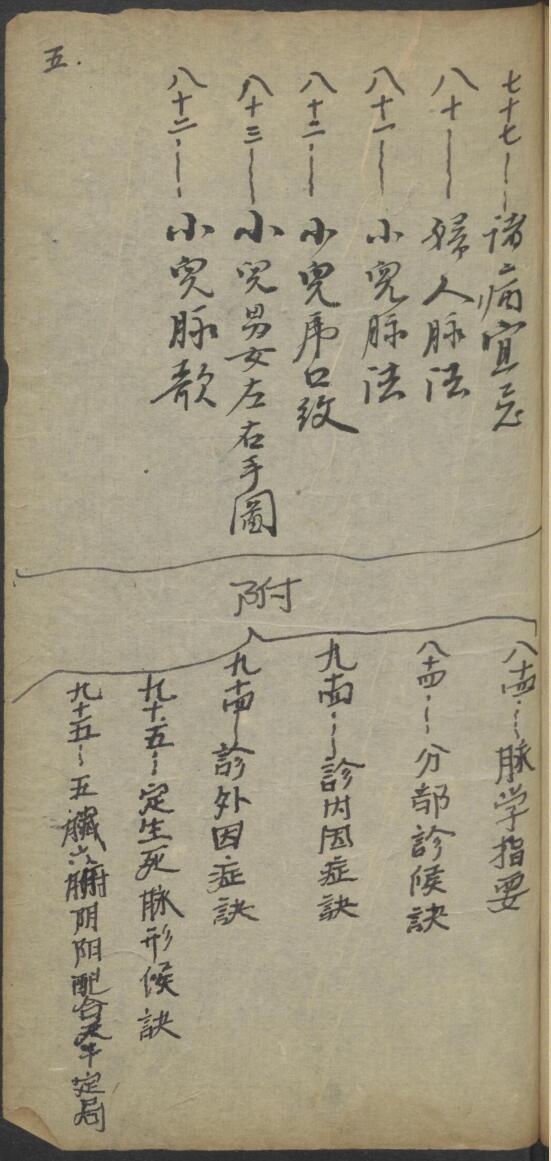 五.
七十七 诸病宜忌
八十 婦人脉法
八十一 小兒脉法
八十二 小兒虎口纹
八十三 小兒男女左右手圖
八十二 小兒脉歌
附
八十四 脉学指要
八十四 分部診候訣
九十四 診内因症訣
九十四 診外因症訣
九十五 定生死脉形候訣
九十五 五臟六腑阴阳配合 定局